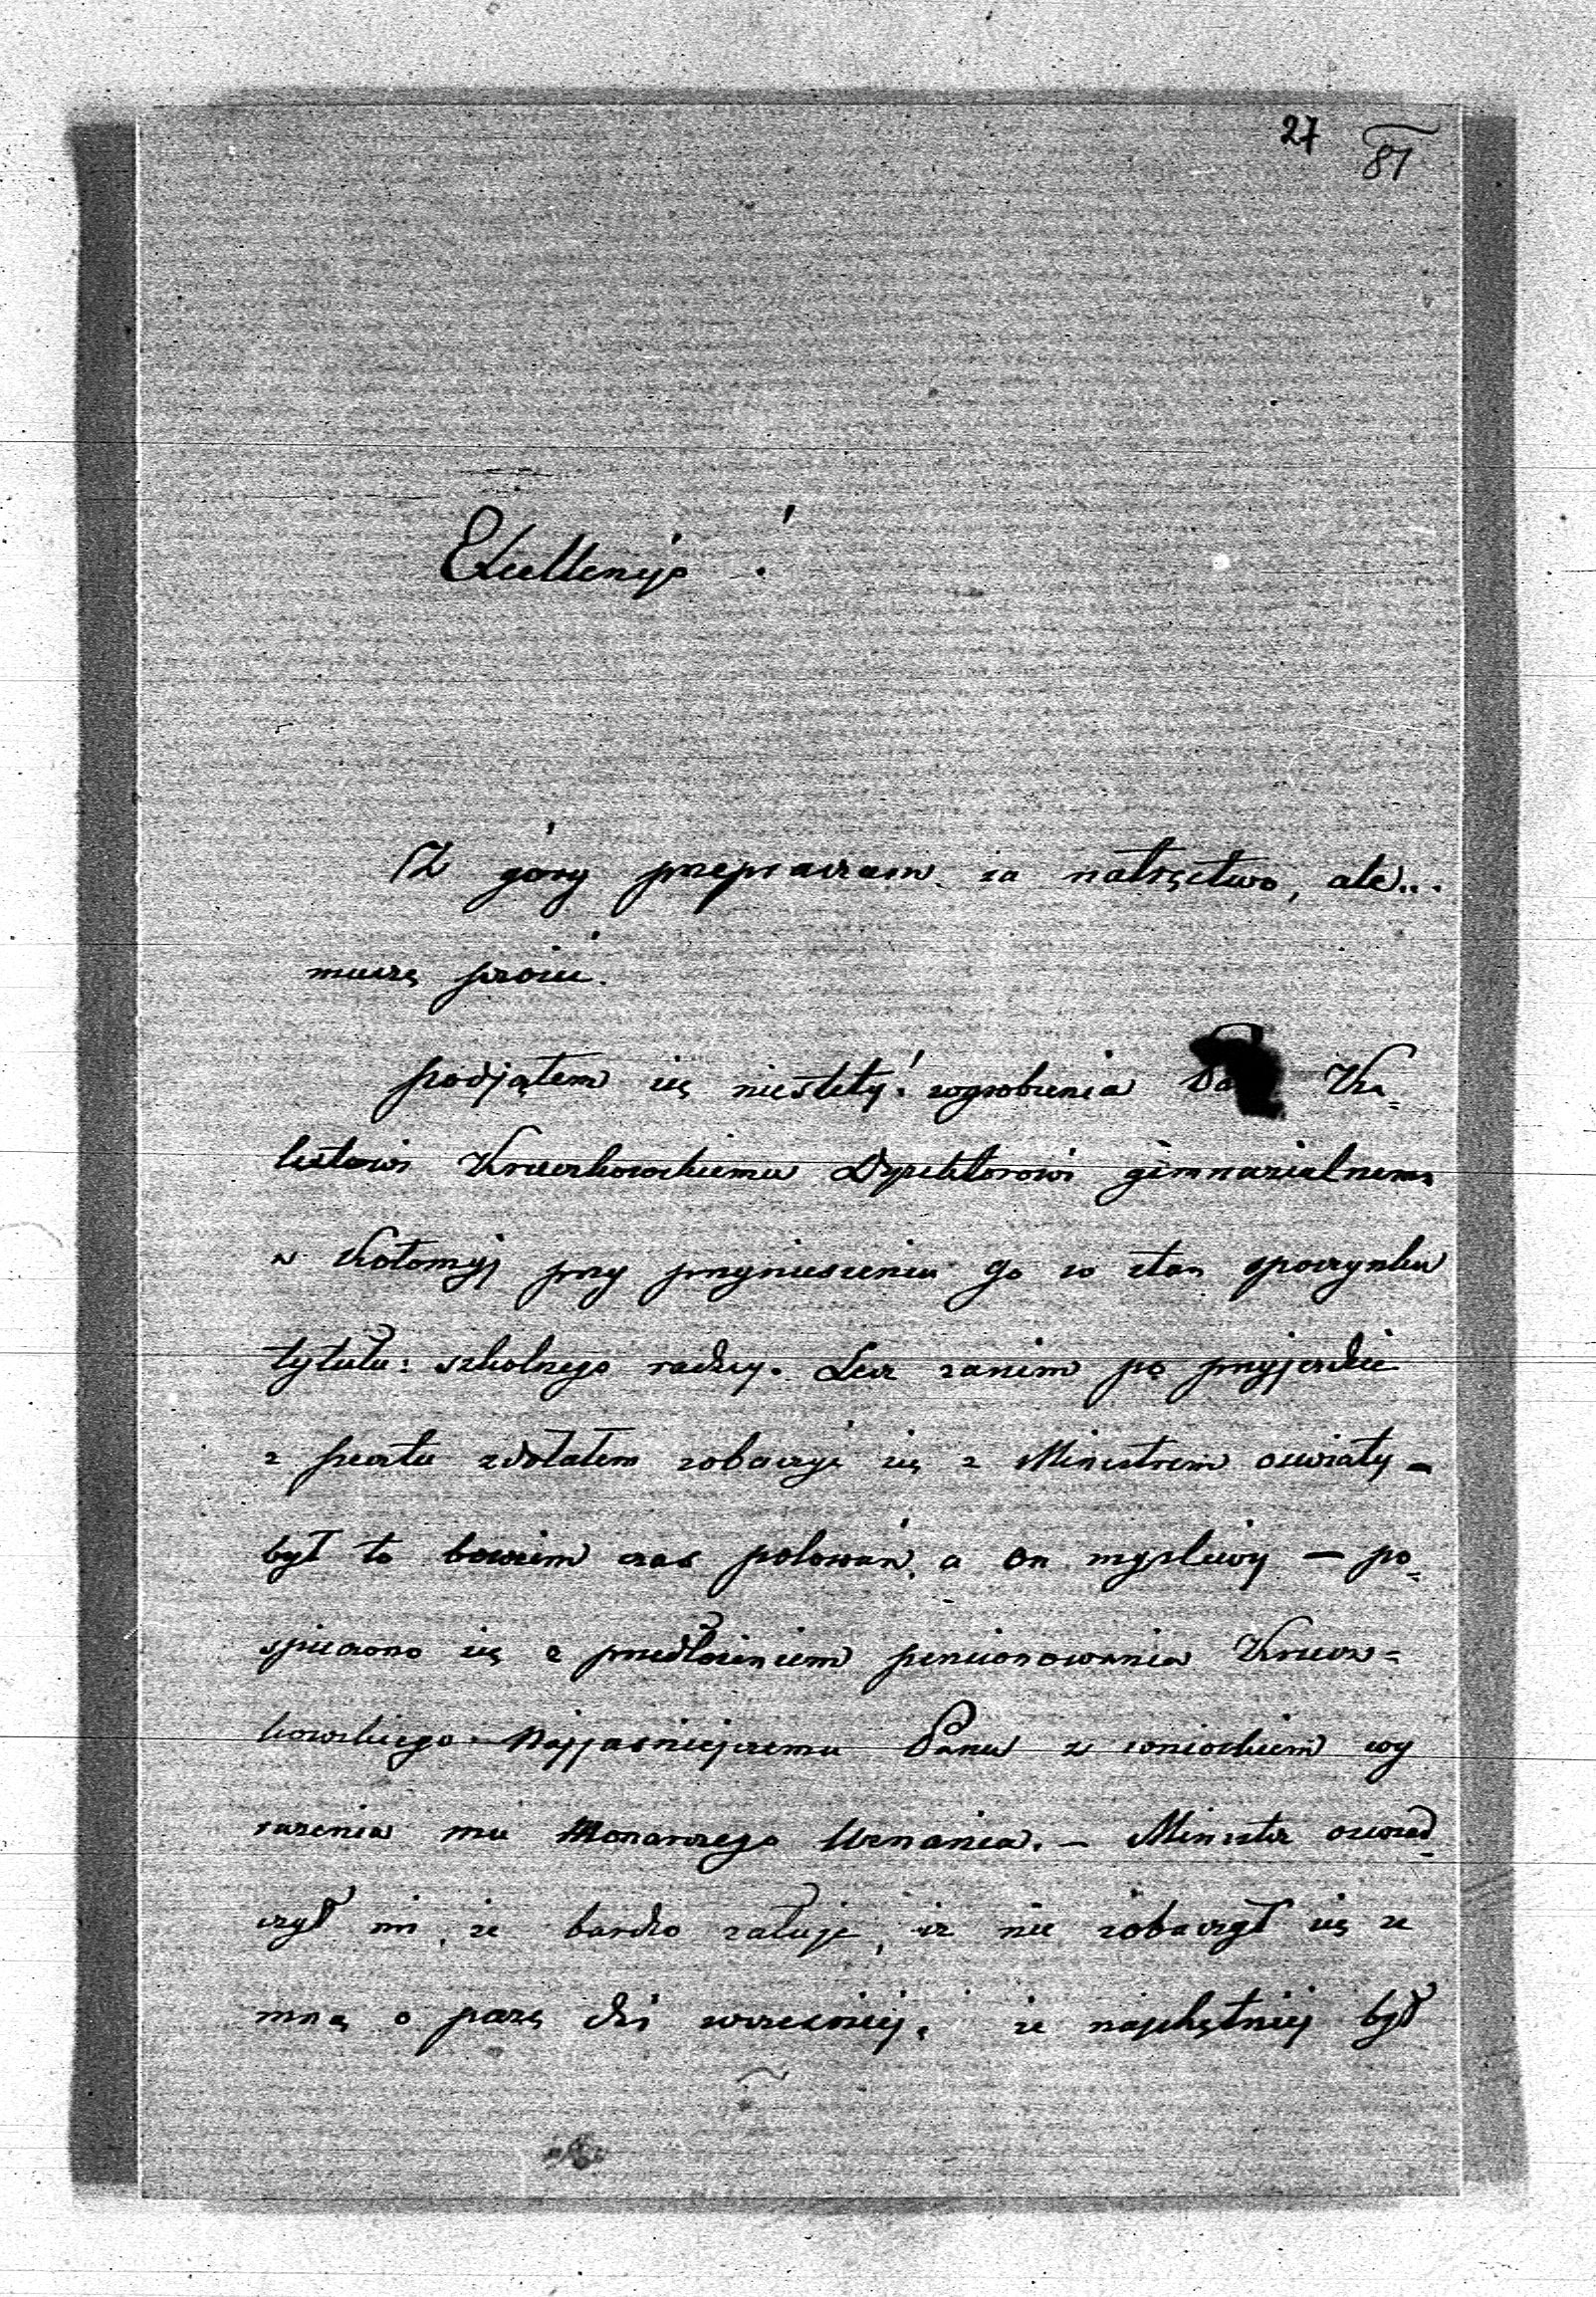 27
81
Excellencyo!
Z góry przepraszam za natręctwo, ale...
muszę prosić.
Podjąłem się niestety! wyrobienia Ka=
lixtowi Kruczkowskiemu Dyrektorowi gimnazialnemu
w Kołomyj przy przyniesieniu go w stan spoczynku
tytułu: szkolnego radzcy. Lecz zanim po przyjezdzie
z Pesztu zdołałem zobaczyć się z Ministrem oswiaty -
był to bowiem czas polowań, a on mysliwy - po=
spieszono się z przedłożeniem pensionowania Krucz=
kowskiego Najjasniejszemu Panu z wnioskiem wy
rażenia mu Monarszego Uznania. - Minister oswiad
czył mi, że bardzo załuje, iż nie zobaczył się ze
mną o parę dni wczesniej, że najchętniej był